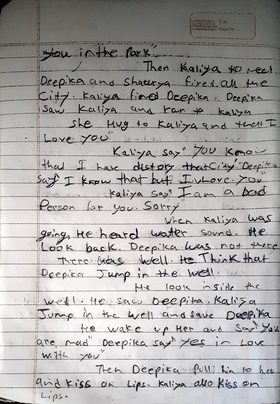 you in the park"
Then Kaliya to reel
Deepika and shaurya fired all the
City. Kaliya fined Deepika. Deepika
saw Kaliya and ran to Kaliya
She Hug to Kaliya and "I
Love you"
Kaliya say "You Know
that I have distory that City" Deepika
say I know that but I Love You"
Kaliya say "I am a bad
Person for you. Sorry
when Kaliya was
going, He heard water sound. He
Look back. Deepika was not there
There was well. He Think that
Deepika Jump in the well.
He look inside the
well. He saw Deepika. Kaliya
Jump in the well and save Deepika
He wake up Her and Say "You
are mad" Deepika say "Yes in Love
with you"
Then Deepika pull him to her
and kiss on Lips. Kaliya also kiss on
Lips.